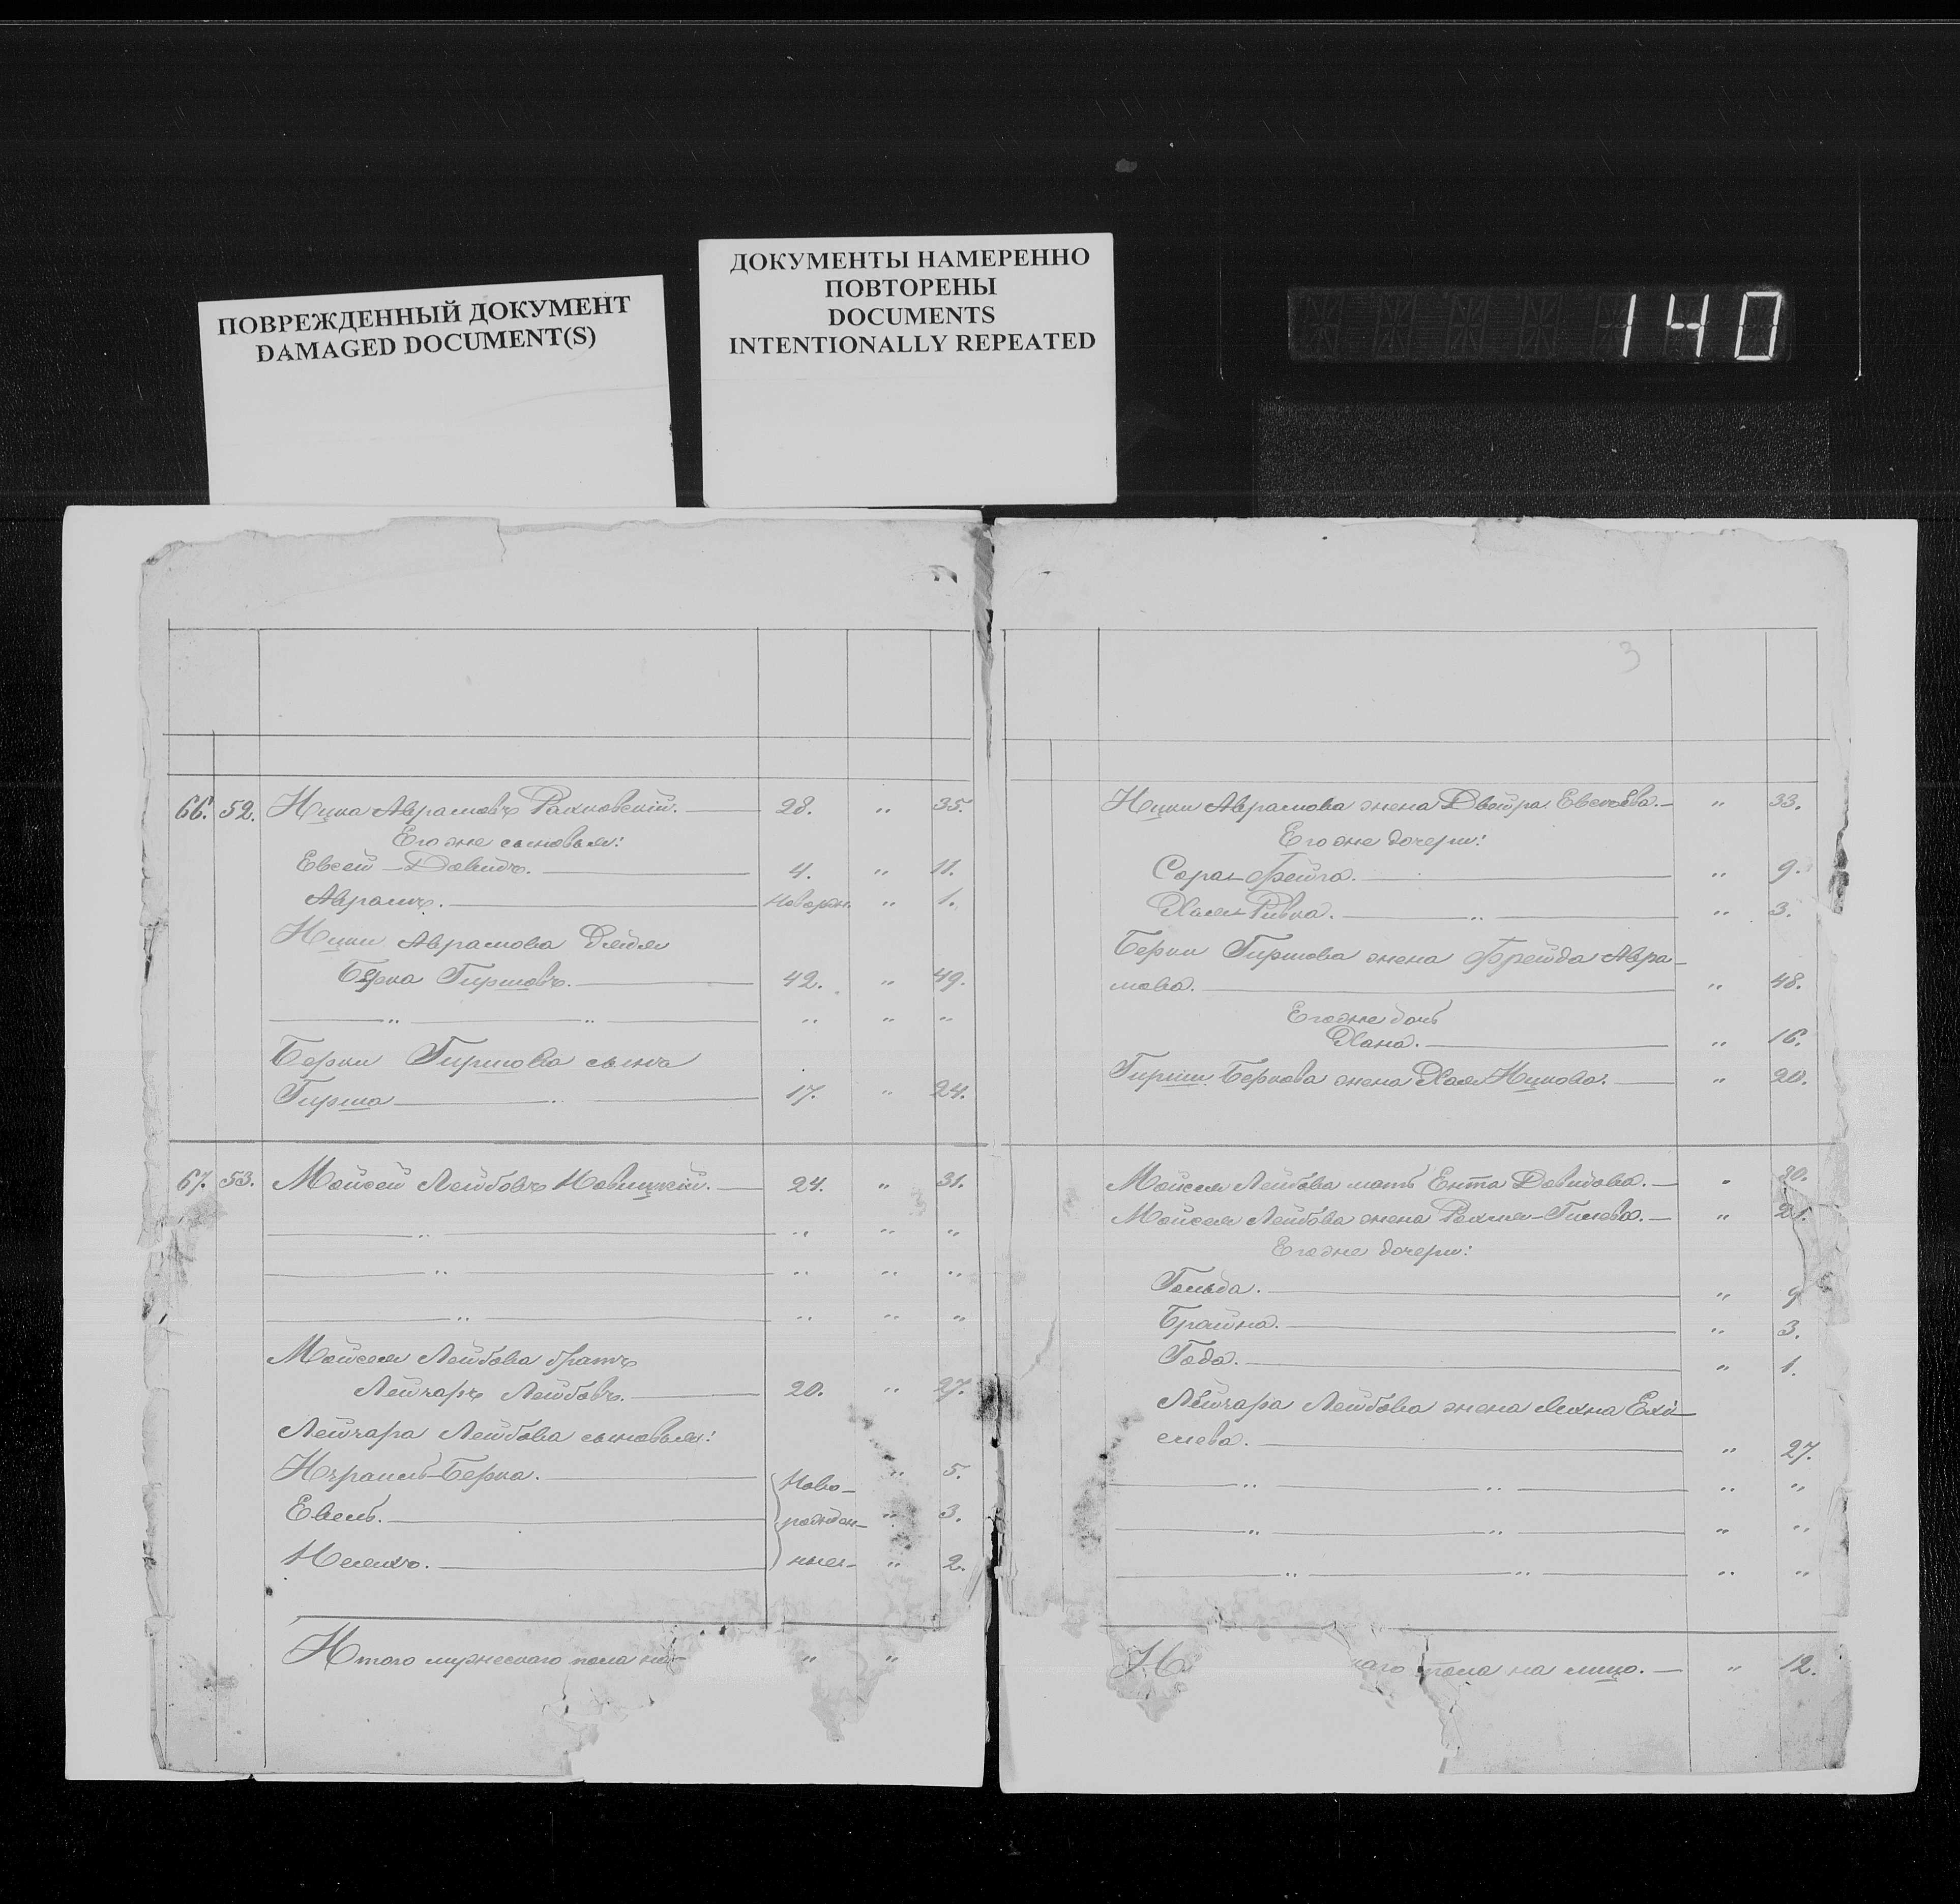 ПОВРЕЖДЕННЫЙ ДОКУМЕНТ
DAMAGED DOCUMENT(S)
ДОКУМЕНТЫ НАМЕРЕННО
ПОВТОРЕНЫ
DOCUMENTS
INTENTIONALLY REPEATED
140
66. 52. Ицка Аврамовъ Рахковскій. 28. " 35.
Его же сыновья:
Евсей-Давидъ. 4. " 11.
Аврамъ. новорож. " 1.
Ицки Аврамова дядя
Берка Гиршовъ. 42. " 49.
" " " " "
Берки Гиршова сынъ
Гирша " 17. " 24.
67. 53. Мойсей Лейбовъ Новицкій. 24. " 31.
" " " "
" " " "
" " " "
Мойсея Лейбова братъ
Лейзаръ Лейбовъ. 20. " 27.
Лейзара Лейбова сыновья:
Израиль-Берка. Ново- " 5.
Евель. рожден- " 3.
ные " 2.
Итого мужескаго пола на " "
3
Ицки Аврамова жена Двойра Евсеева. " 33.
Его же дочери:
Сора-Фейга. " 9.
Хая-Ривка. " " 3.
Берки Гиршова жена Фрейда Авра-
мова. " 48.
Его же дочь
Хана. " 16.
Гирши Беркова жена Хая Ицкова. " 20.
Мойсея Лейбова мать Ента Давидова. "
Мойсея Лейбова жена "
Его же дочери:
Гольда. " 9
Брайна. " 3.
Года. " 1.
Лейзара Лейбова жена
" 27.
" " " "
" " " "
" " " "
И каго пола на лицо. " 12.